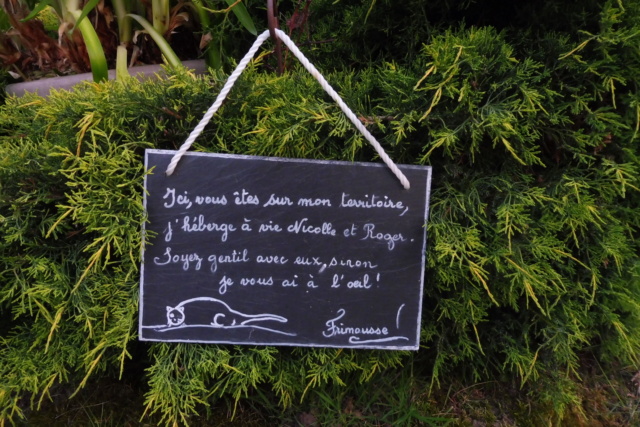 Ici, vous êtes sur mon territoire,
j'héberge à vie Nicolle et Roger.
Soyez gentil avec eux, sinon
je vous ai à l'oeil!
Frimousse!